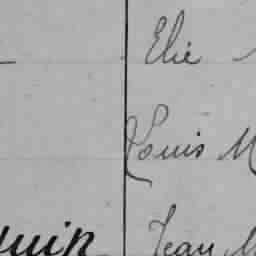 Elie
Louis M
uin Jean M